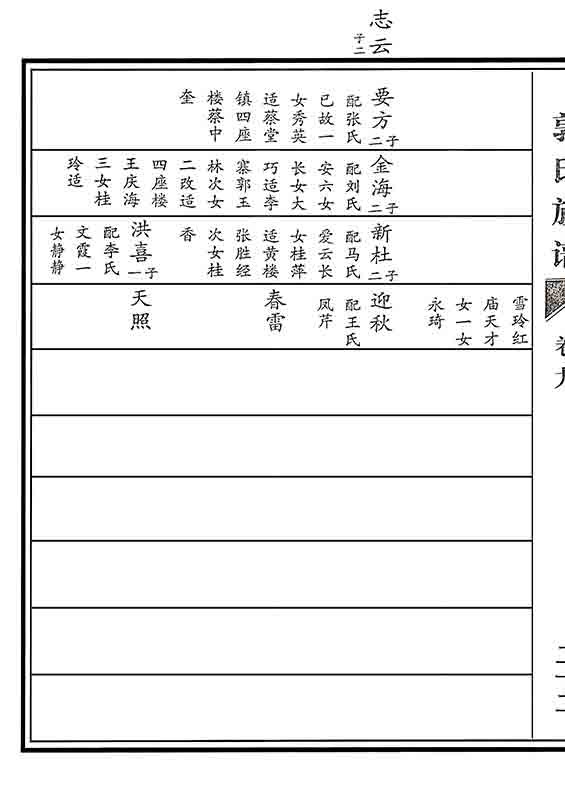 郭氏族谱
卷九
志云
子二
要方
子二
配张氏
已故一
女秀英
适蔡堂
镇四座
楼蔡中
奎
金海
子二
配刘氏
安六女
长女大
巧适李
寨郭玉
林次女
二改适
四座楼
王庆海
三女桂
玲适
新杜
子二
配马氏
爱云长
女桂萍
适黄楼
张胜经
次女桂
香
洪喜
子一
配李氏
文霞一
女静静
雪玲红
庙天才
女一女
永琦
迎秋
配王氏
凤芹
春雷
天照